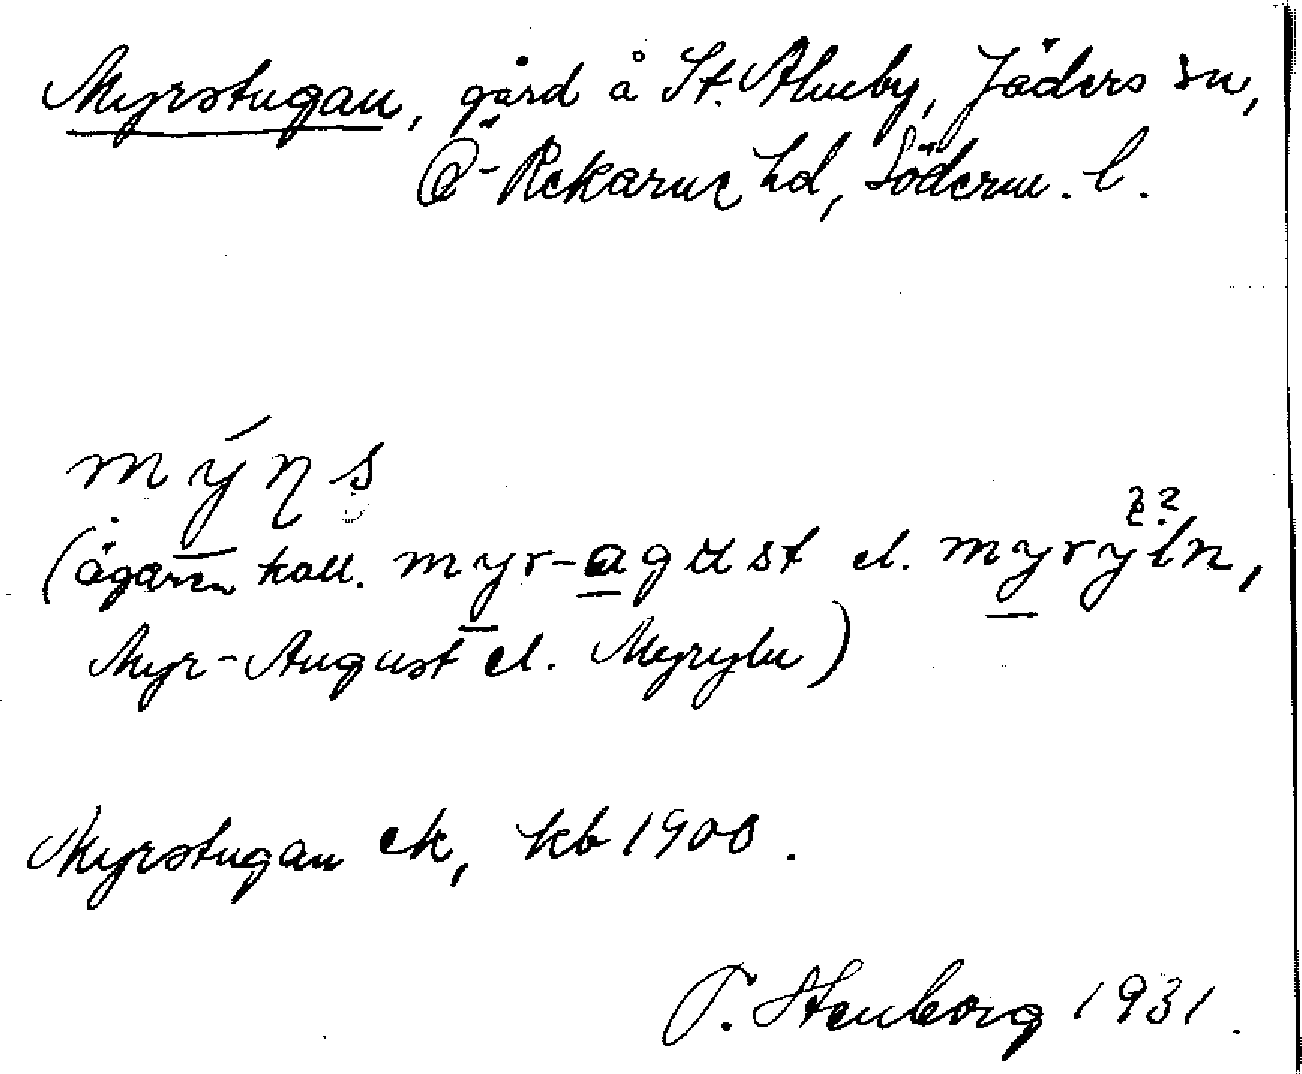 Myrstugan, gård å St. Åhlby, Jäders sn,
Ö-Rekarne hd, Söderm. l.
mýŋs
(ägaren kall. myr-agust el. myryln,
Myr-August el. Myryln)
Myrstugan ek, kb 1900.
T. Stenborg 1931.